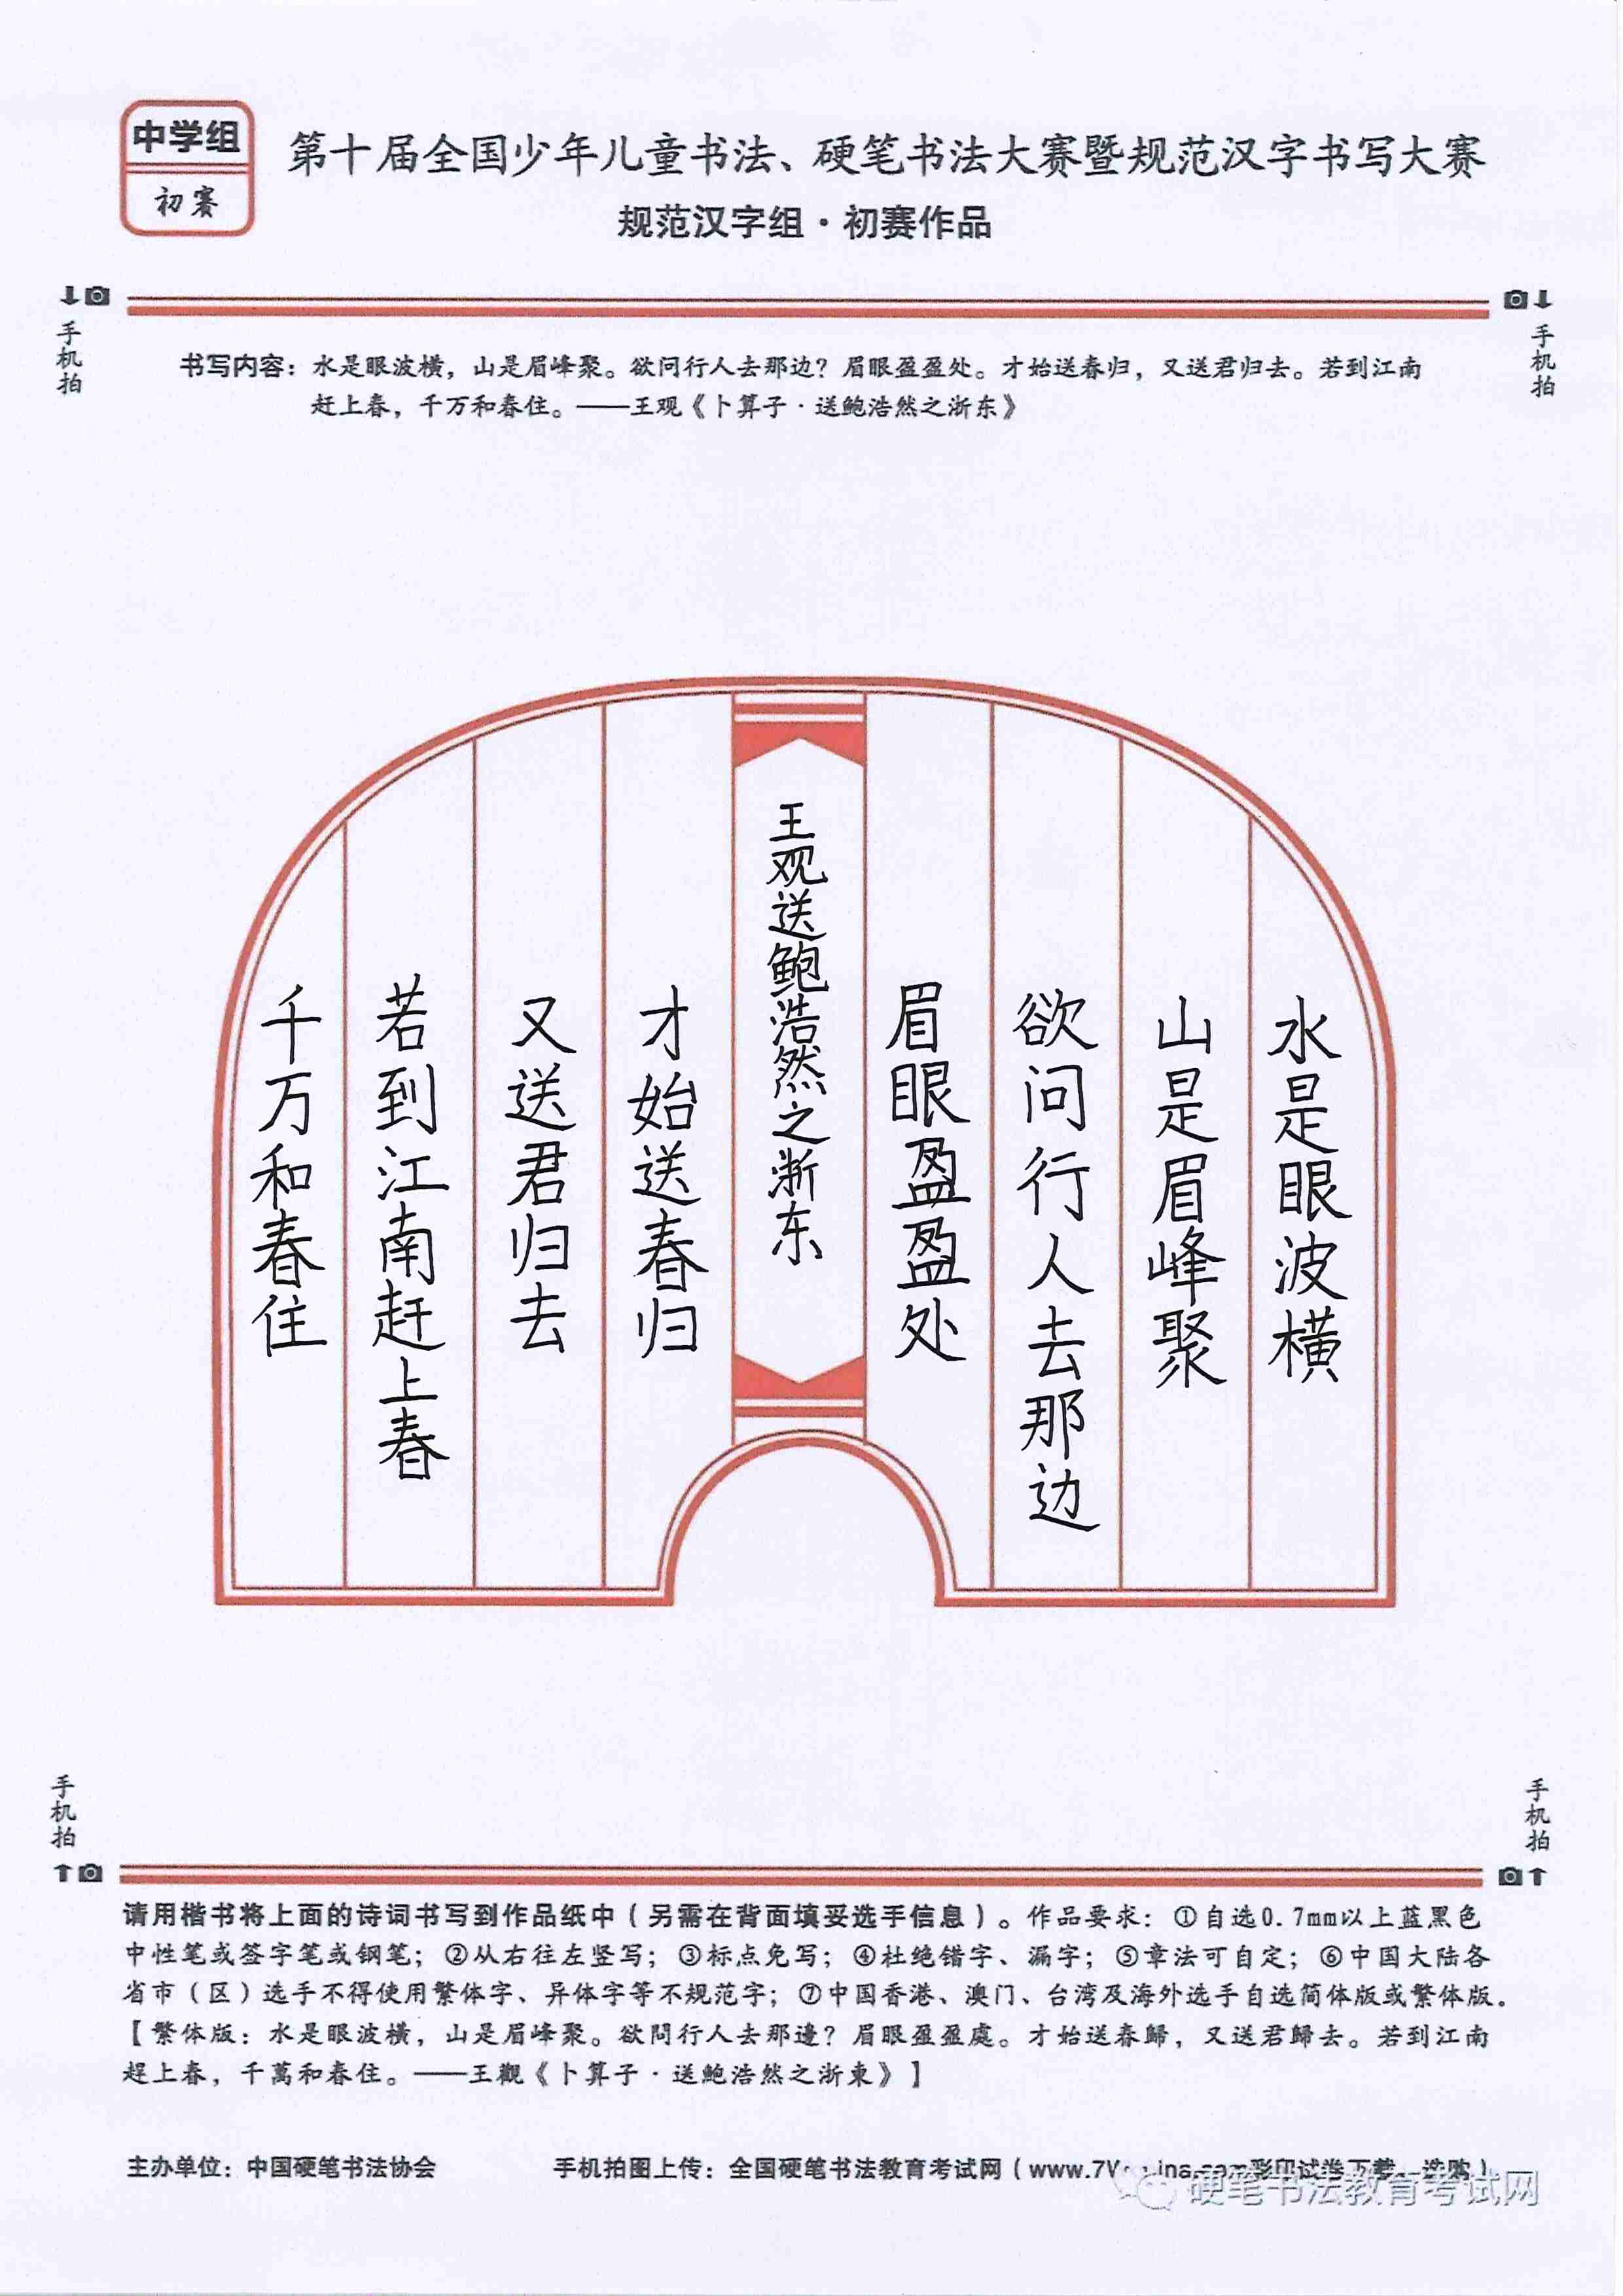 中学组
初赛
第十届全国少年儿童书法、硬笔书法大赛暨规范汉字书写大赛
规范汉字组·初赛作品
手机拍
手机拍
书写内容：水是眼波横，山是眉峰聚。欲问行人去那边？眉眼盈盈处。才始送春归，又送君归去。若到江南
赶上春，千万和春住。——王观《卜算子·送鲍浩然之浙东》
水是眼波横
山是眉峰聚
欲问行人去那边
眉眼盈盈处
王观送鲍浩然之浙东
才始送春归
又送君归去
若到江南赶上春
千万和春住
手机拍
手机拍
请用楷书将上面的诗词书写到作品纸中（另需在背面填妥选手信息）。作品要求：①自选0.7mm以上蓝黑色
中性笔或签字笔或钢笔；②从右往左竖写；③标点免写；④杜绝错字、漏字；⑤章法可自定；⑥中国大陆各
省市（区）选手不得使用繁体字、异体字等不规范字；⑦中国香港、澳门、台湾及海外选手自选简体版或繁体版。
【繁体版：水是眼波橫，山是眉峰聚。欲問行人去那邊？眉眼盈盈處。才始送春歸，又送君歸去。若到江南
趕上春，千萬和春住。——王觀《卜算子·送鮑浩然之浙東》】
主办单位：中国硬笔书法协会
手机拍图上传：全国硬笔书法教育考试网（www.7V 彩印试卷下载、选购）
硬笔书法教育考试网